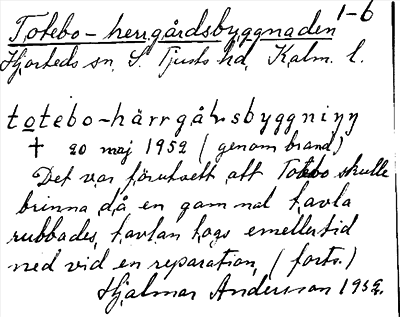 1-6
Totebo-herrgårdsbyggnaden
Hjorteds sn, S. Tjusts hd, Kalm. l.
totebo-härrgå̊rsbyggniŋ
† 20 maj 1952 (genom brand)
Det var förutsett att Totebo skulle
brinna då en gammal tavla
rubbades, tavlan togs emellertid
ned vid en reparation, (forts.)
Hjalmar Andersson 1952.